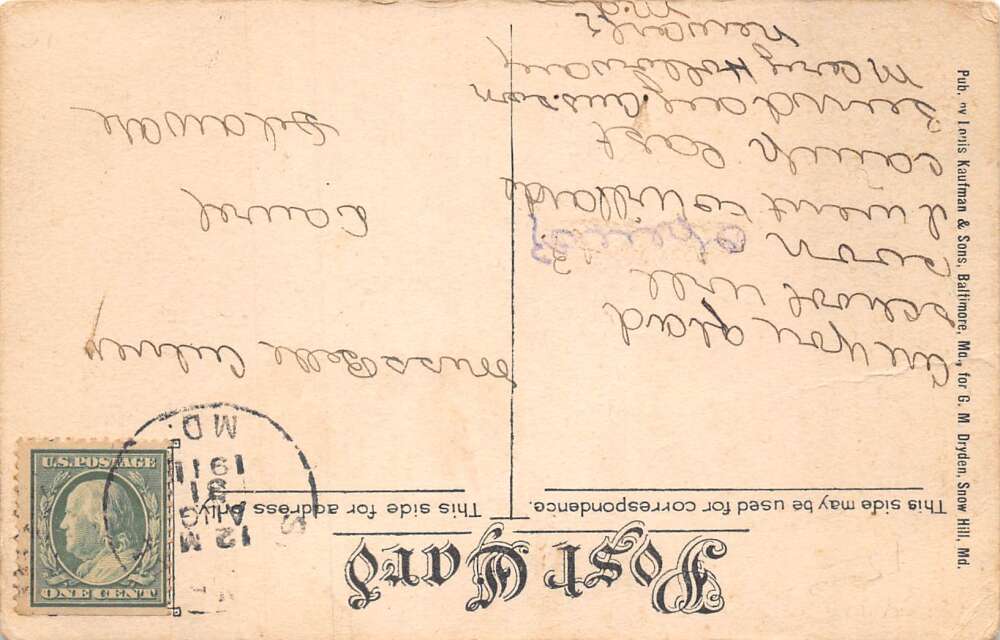 POST CARD
This side may be used for correspondence.
This side for address only.
Are you glad
school will
soon open
I went to Willards
camp last
Sunday ans soon
Mary Holloway
Newark
Md.
Miss Belle Culver
Laurel
Delaware
12 M
AUG
31
1911
MD.
U.S. POSTAGE
ONE CENT
Pub. by Louis Kaufman & Sons, Baltimore, Md., for G. M. Dryden, Snow Hill, Md.